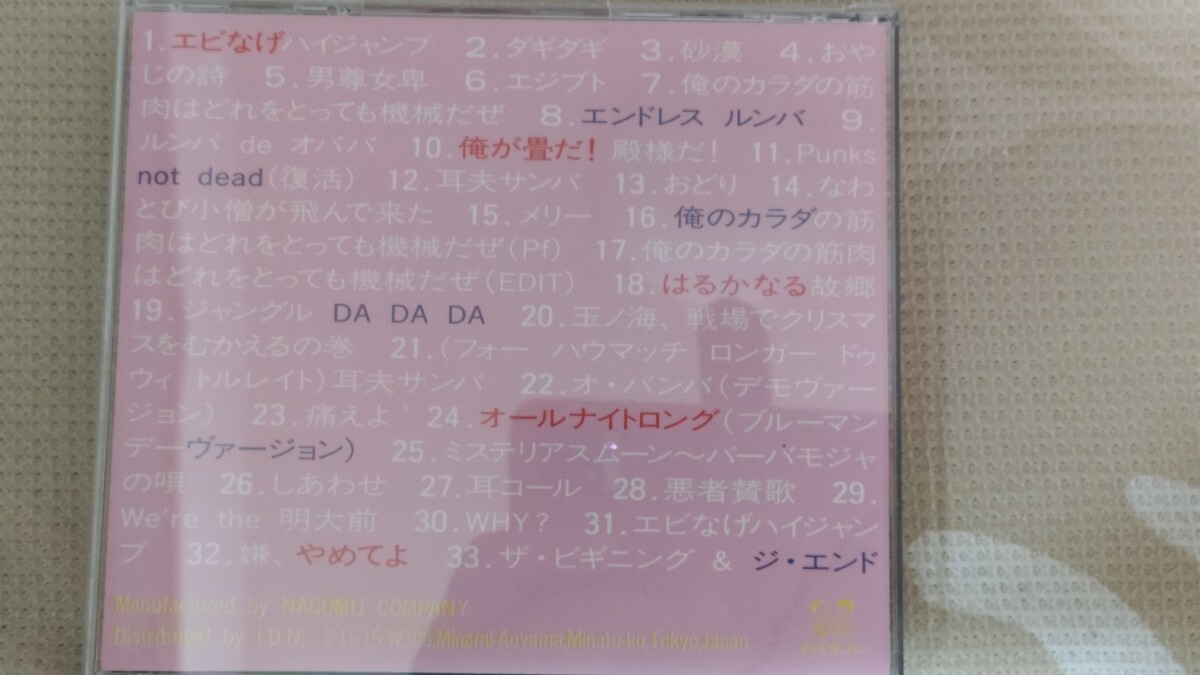 1.エビなげハイジャンプ 2.ダギダギ 3.砂漠 4.おや
じの詩 5.男尊女卑 6.エジプト 7.俺のカラダの筋
肉はどれをとっても機械だぜ 8.エンドレス ルンバ 9.
ルンバ de オババ 10.俺が畳だ!殿様だ! 11.Punks
not dead(復活) 12.耳夫サンバ 13.おどり 14.なわ
とび小僧が飛んで来た 15.メリー 16.俺のカラダの筋
肉はどれをとっても機械だぜ(Pf) 17.俺のカラダの筋肉
はどれをとっても機械だぜ(EDIT) 18.はるかなる故郷
19.ジャングル DA DA DA 20.玉ノ海、戦場でクリスマ
スをむかえるの巻 21.(フォー ハウマッチ ロンガー ドゥ
ウィ トルレイト)耳夫サンバ 22.オ・バンバ(デモヴァー
ジョン) 23.痛えよ 24.オールナイトロング(ブルーマン
デーヴァージョン) 25.ミステリアスムーン〜バーバモジャ
の唄 26.しあわせ 27.耳コール 28.悪者賛歌 29.
We're the 明大前 30.WHY? 31.エビなげハイジャン
プ 32.嫌、やめてよ 33.ザ・ビギニング & ジ・エンド
Manufactured by NAGOMU COMPANY
Distributed by I.D.N. Minami-Aoyama,Minato-ku,Tokyo,Japan